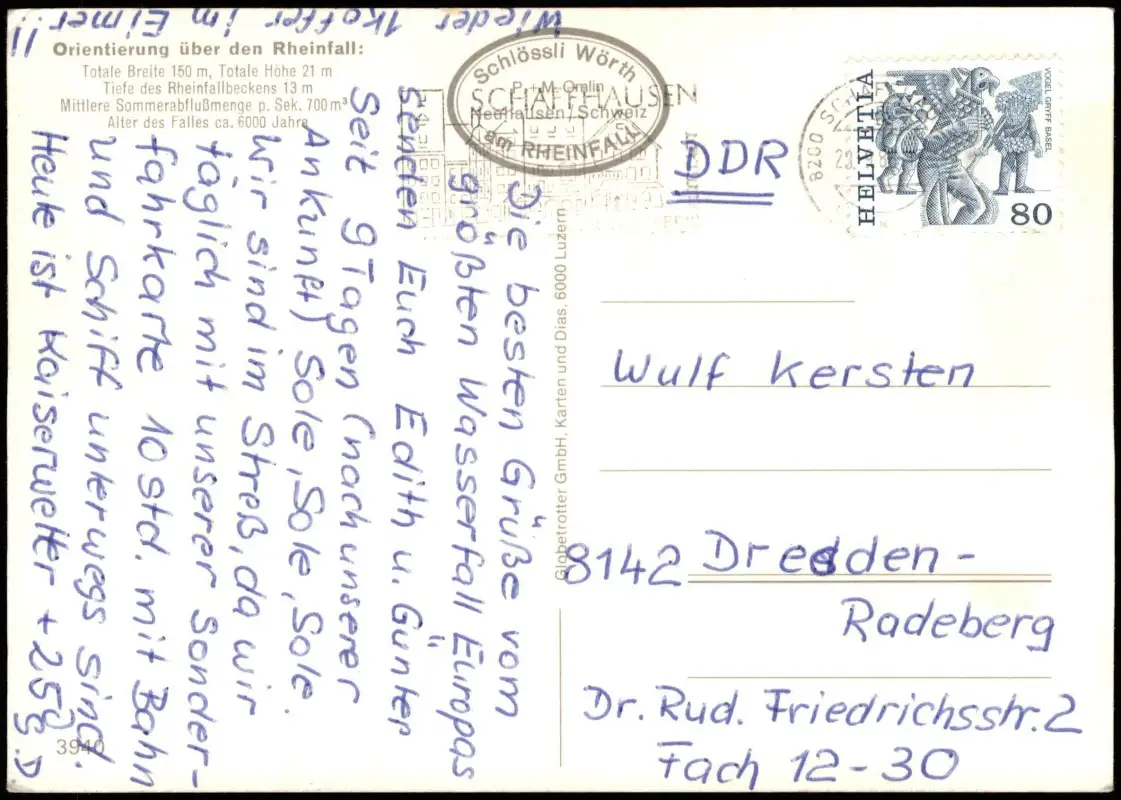 Wieder 1 Koffer im Eimer!!
Orientierung über den Rheinfall:
Totale Breite 150 m, Totale Höhe 21 m
Tiefe des Rheinfallbeckens 13 m
Mittlere Sommerabflußmenge p. Sek. 700 m³
Alter des Falles ca. 6000 Jahre
Schlössli Wörth
P. + M. Omlin
Neuhausen/Schweiz
am RHEINFALL
SCHAFFHAUSEN
8200
HELVETIA
VOGEL GRYFF BASEL
80
DDR
Die besten Grüße vom
größten Wasserfall Europas
senden Euch Edith u. Günter
Seit 9 Tagen (nach unserer
Ankunft) Sole, Sole, Sole.
Wir sind im Streß, da wir
täglich mit unserer Sonder-
fahrkarte 10 Std. mit Bahn
und Schiff unterwegs sind.
Heute ist Kaiserwetter +25
Globetrotter GmbH, Karten und Dias, 6000 Luzern
Wulf Kersten
8142 Dresden-
Radeberg
Dr. Rud. Friedrichsstr. 2
Fach 12-30
3940